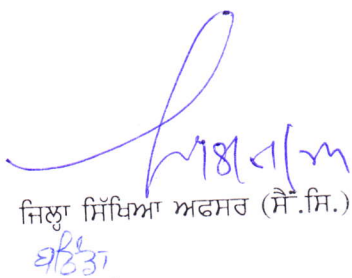 ਜਿਲ੍ਹਾ ਸਿੱਖਿਆ ਅਫਸਰ (ਸੈਂ.ਸਿ.)
ਬਠਿੰਡਾ